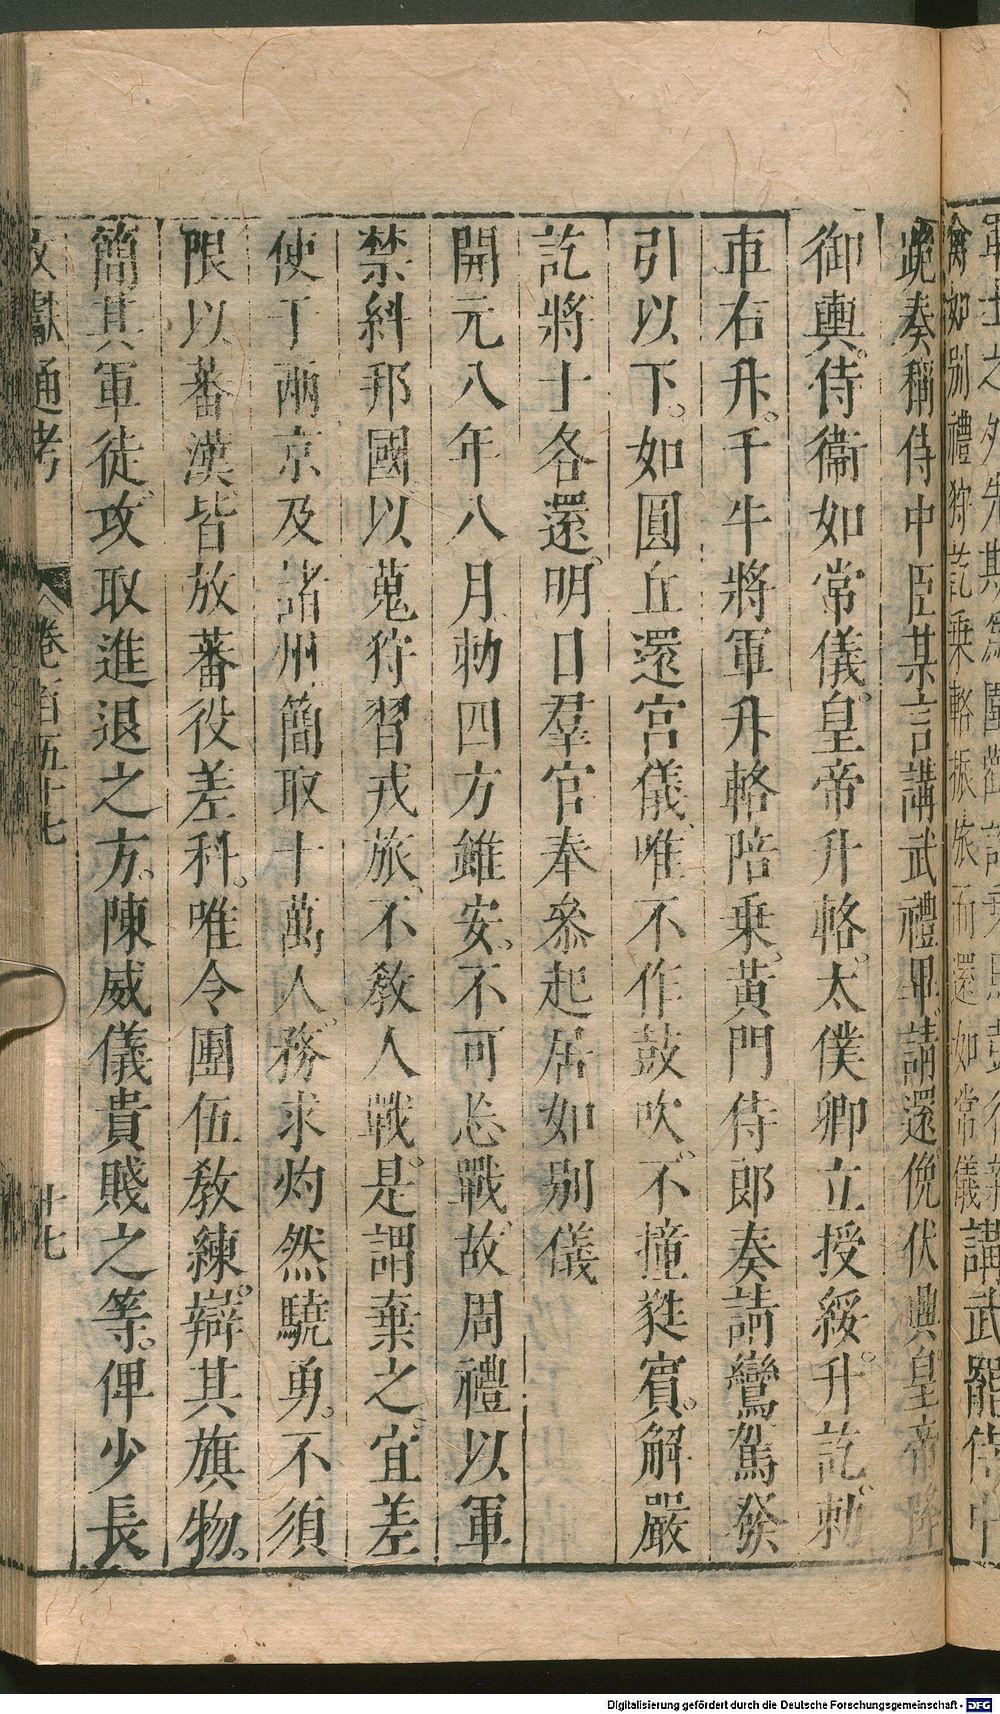 講武罷侍中
禽如別禮狩訖乗輅振旅而還如常儀
跪奏稱侍中臣某言講武禮畢請還俛伏興皇帝降
御輿侍衞如常儀皇帝升輅太僕卿立授綏升訖勅
車右升千牛將軍升輅陪乗黃門侍郎奏請鸞駕發
引以下如圓丘還宮儀唯不作鼓吹不撞蕤賓解嚴
訖將士各還明日羣官奉叅起居如別儀
開元八年八月勅四方雖安不可忘戰故周禮以軍
禁糾邦國以蒐狩習戎旅不敎人戰是謂棄之宜差
使于兩京及諸州簡取十萬人務求灼然驍勇不須
限以蕃漢皆放蕃役差科唯令團伍敎練辯其旗物
簡其軍徒攻取進退之方陳威儀貴賤之等俾少長
文獻通考 卷百五十七 十七
Digitalisierung gefördert durch die Deutsche Forschungsgemeinschaft - DFG